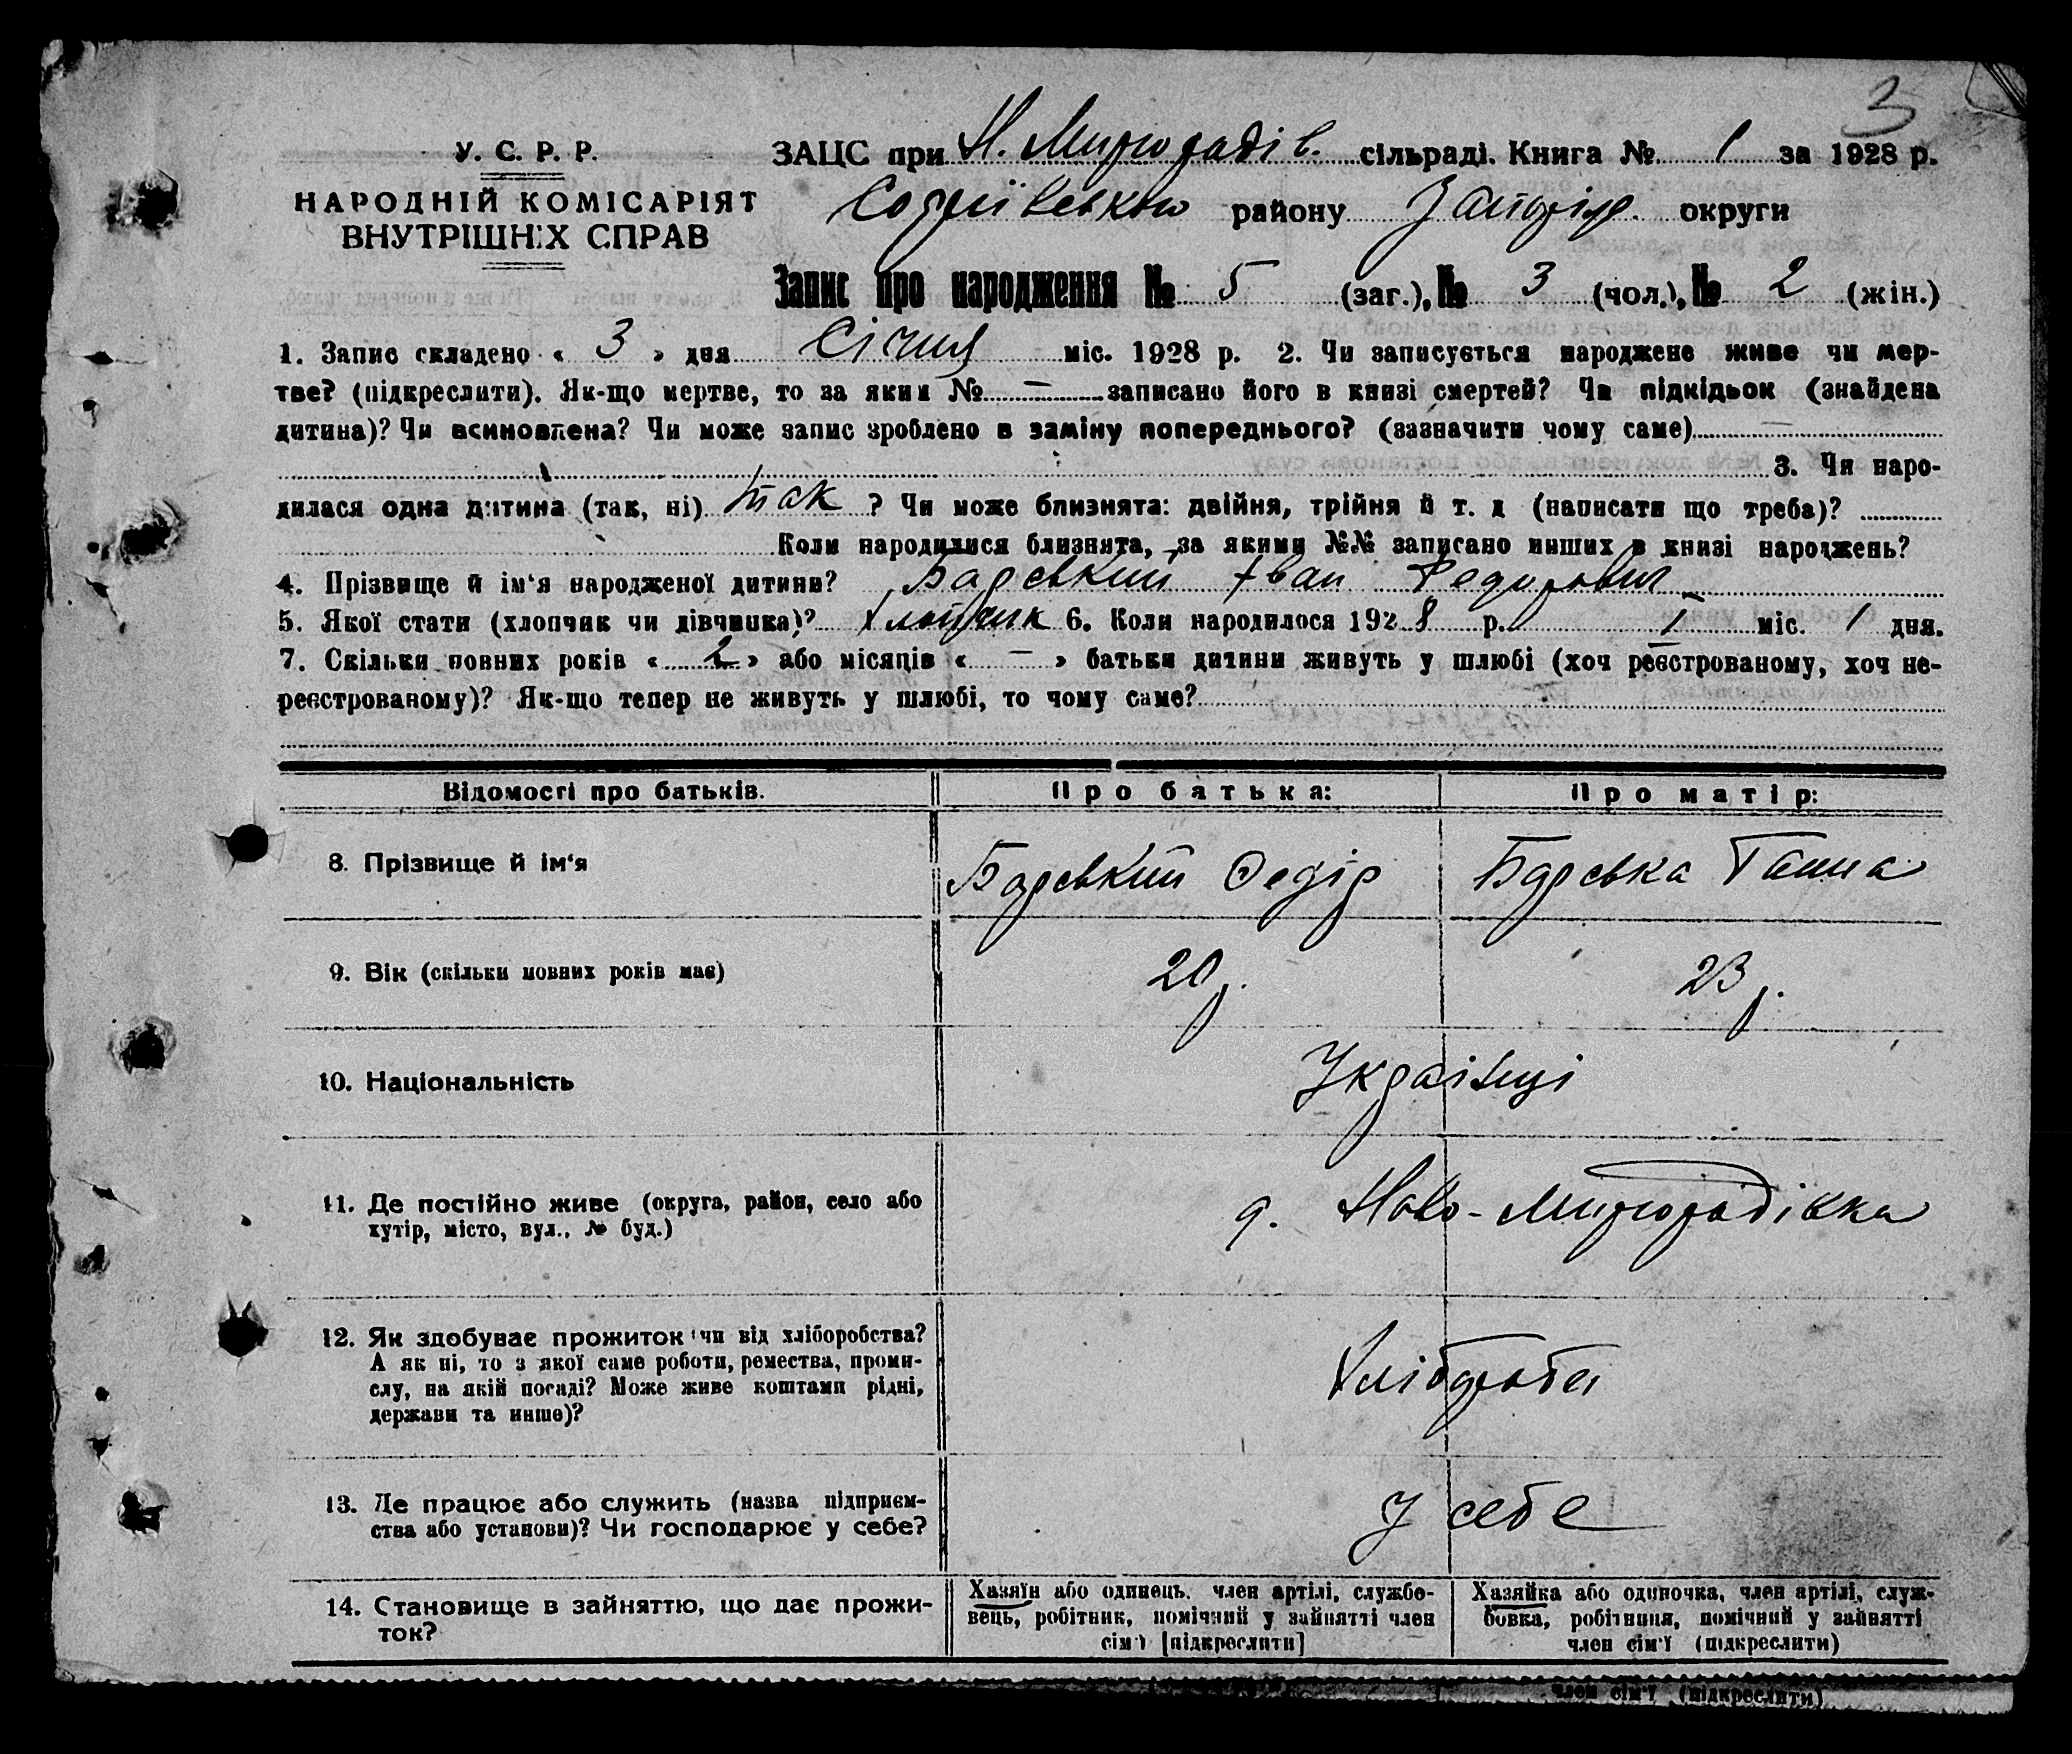 3
У. С. Р. Р.
НАРОДНІЙ КОМІСАРІЯТ
ВНУТРІШНІХ СПРАВ
ЗАЦС при Н. Миргородів. сільраді. Книга № 1 за 1928 р.
Софиївського району Запоріз. округи
Запис про народження № 5 (заг.), № 3 (чол.), № 2 (жін.)
1. Запис складено « 3 » дня Січня міс. 1928 р. 2. Чи записується народжене живе чи мер-
тве? (підкреслити). Як-що мертве, то за яким № — записано його в книзі смертей? Чи підкідьок (знайдена
дитина)? Чи всиновлена? Чи може запис зроблено в заміну попереднього? (зазначити чому саме) —
3. Чи наро-
дилася одна дитина (так, ні) так ? Чи може близнята: двійня, трійня й т. д (написати що треба)?
Коли народилися близнята, за якими №№ записано инших в книзі народжень?
4. Прізвище й ім‘я народженої дитини? Барський Іван Федорович
5. Якої стати (хлопчик чи дівчинка)? Хлопчик 6. Коли народилося 1928 р. I міс. 1 дня.
7. Скільки повних років « 2 » або місяців « — » батьки дитини живуть у шлюбі (хоч реєстрованому, хоч не-
реєстрованому)? Як-що тепер не живуть у шлюбі, то чому саме?
Відомості про батьків. Про батька: Про матір:
8. Прізвище й ім‘я Барський Федір Барська Ганна
9. Вік (скільки повних років має) 20 р. 23 р.
10. Національність Українці
11. Де постійно живе (округа, район, село або
хутір, місто, вул., № буд.) с. Ново-Миргородівка
12. Як здобуває прожиток чи від хліборобства?
А як ні, то з якої саме роботи, ремества, проми-
слу, на якій посаді? Може живе коштами рідні,
держави та инше)? Хлібороби
13. Де працює або служить (назва підприєм-
ства або установи)? Чи господарює у себе? У себе
14. Становище в зайняттю, що дає прожи-
ток?
Хазяїн або одинець, член артілі, службо-
вець, робітник, помічний у зайнятті член
сім‘ї [підкреслити]
Хазяйка або одиночка, член артілі, служ-
бовка, робітниця, помічний у зайнятті
член сім‘ї (підкреслити)
член сім‘ї (підкреслити)